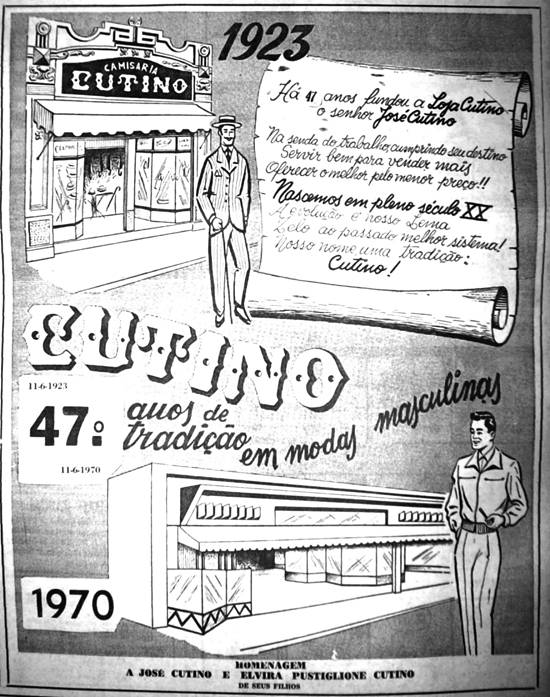 1923
CAMISARIA
CUTINO
Há 47 anos fundou a Loja Cutino
o senhor José Cutino
Na senda do trabalho, cumprindo seu destino
Servir bem para vender mais
Oferecer o melhor pelo menor preço!!
Nascemos em pleno século XX
A evolução é nosso Lema
Zelo ao passado melhor sistema!
Nosso nome, uma tradição:
Cutino!
CUTINO
11-6-1923
47º
anos de
tradição
em modas masculinas
11-6-1970
1970
HOMENAGEM
A JOSÉ CUTINO E ELVIRA PUSTIGLIONE CUTINO
DE SEUS FILHOS